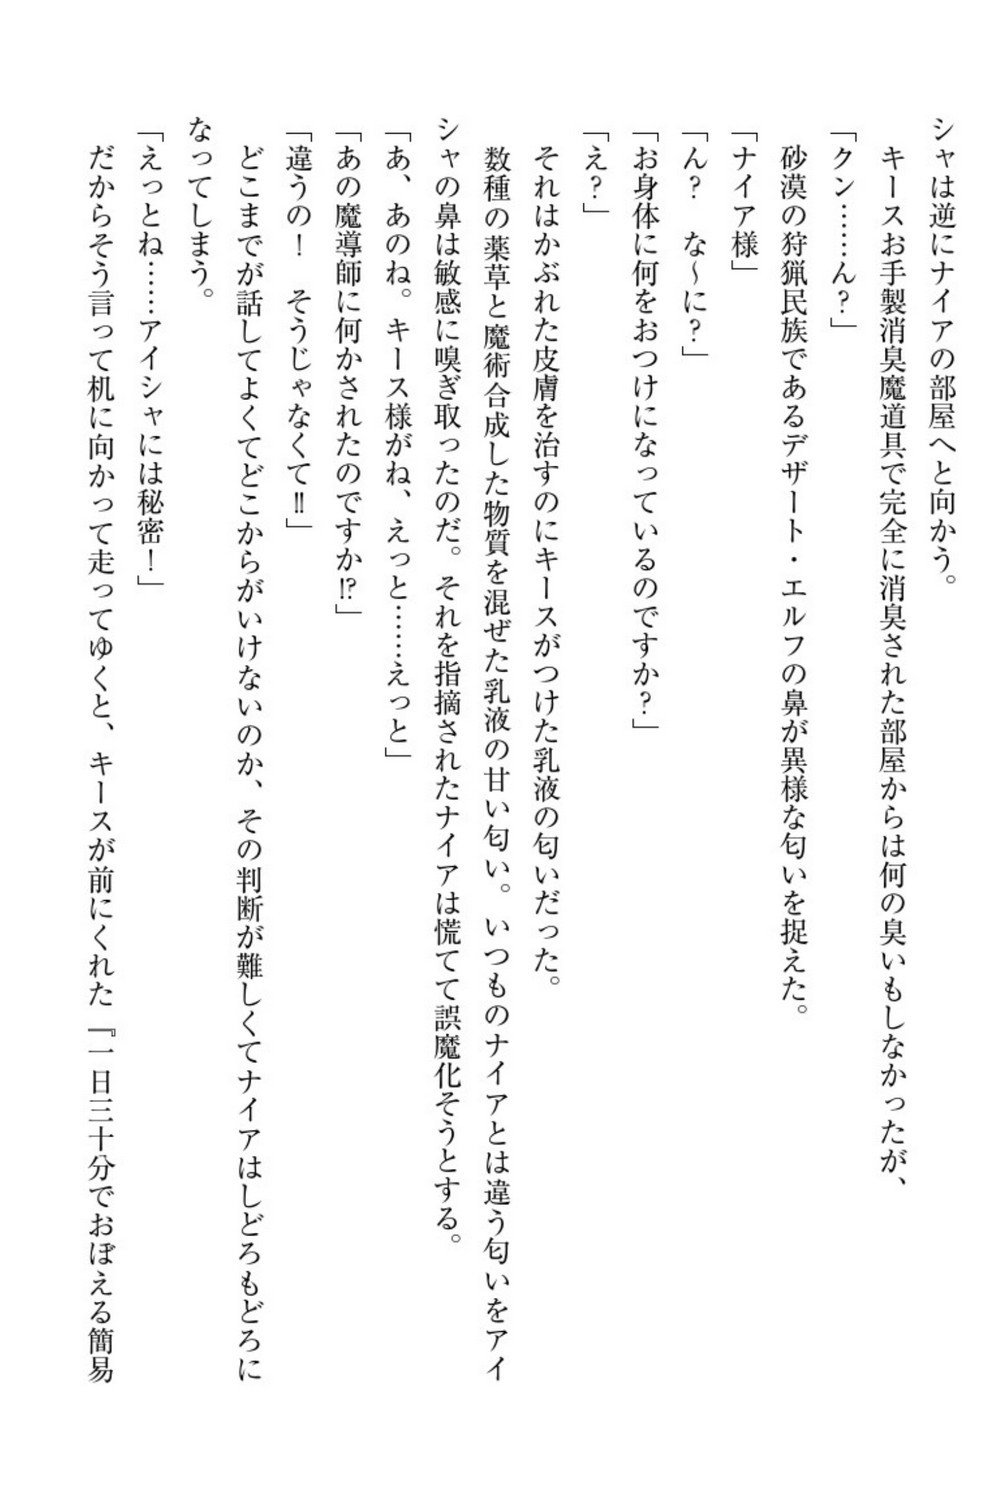 シャは逆にナイアの部屋へと向かう。
　キースお手製消臭魔道具で完全に消臭された部屋からは何の臭いもしなかったが、
「クン……ん？」
　砂漠の狩猟民族であるデザート・エルフの鼻が異様な匂いを捉えた。
「ナイア様」
「ん？　な～に？」
「お身体に何をおつけになっているのですか？」
「え？」
　それはかぶれた皮膚を治すのにキースがつけた乳液の匂いだった。
　数種の薬草と魔術合成した物質を混ぜた乳液の甘い匂い。いつものナイアとは違う匂いをアイ
シャの鼻は敏感に嗅ぎ取ったのだ。それを指摘されたナイアは慌てて誤魔化そうとする。
「あ、あのね。キース様がね、えっと……えっと」
「あの魔導師に何かされたのですか⁉」
「違うの！　そうじゃなくて‼」
　どこまでが話してよくてどこからがいけないのか、その判断が難しくてナイアはしどろもどろに
なってしまう。
「えっとね……アイシャには秘密！」
　だからそう言って机に向かって走ってゆくと、キースが前にくれた『一日三十分でおぼえる簡易